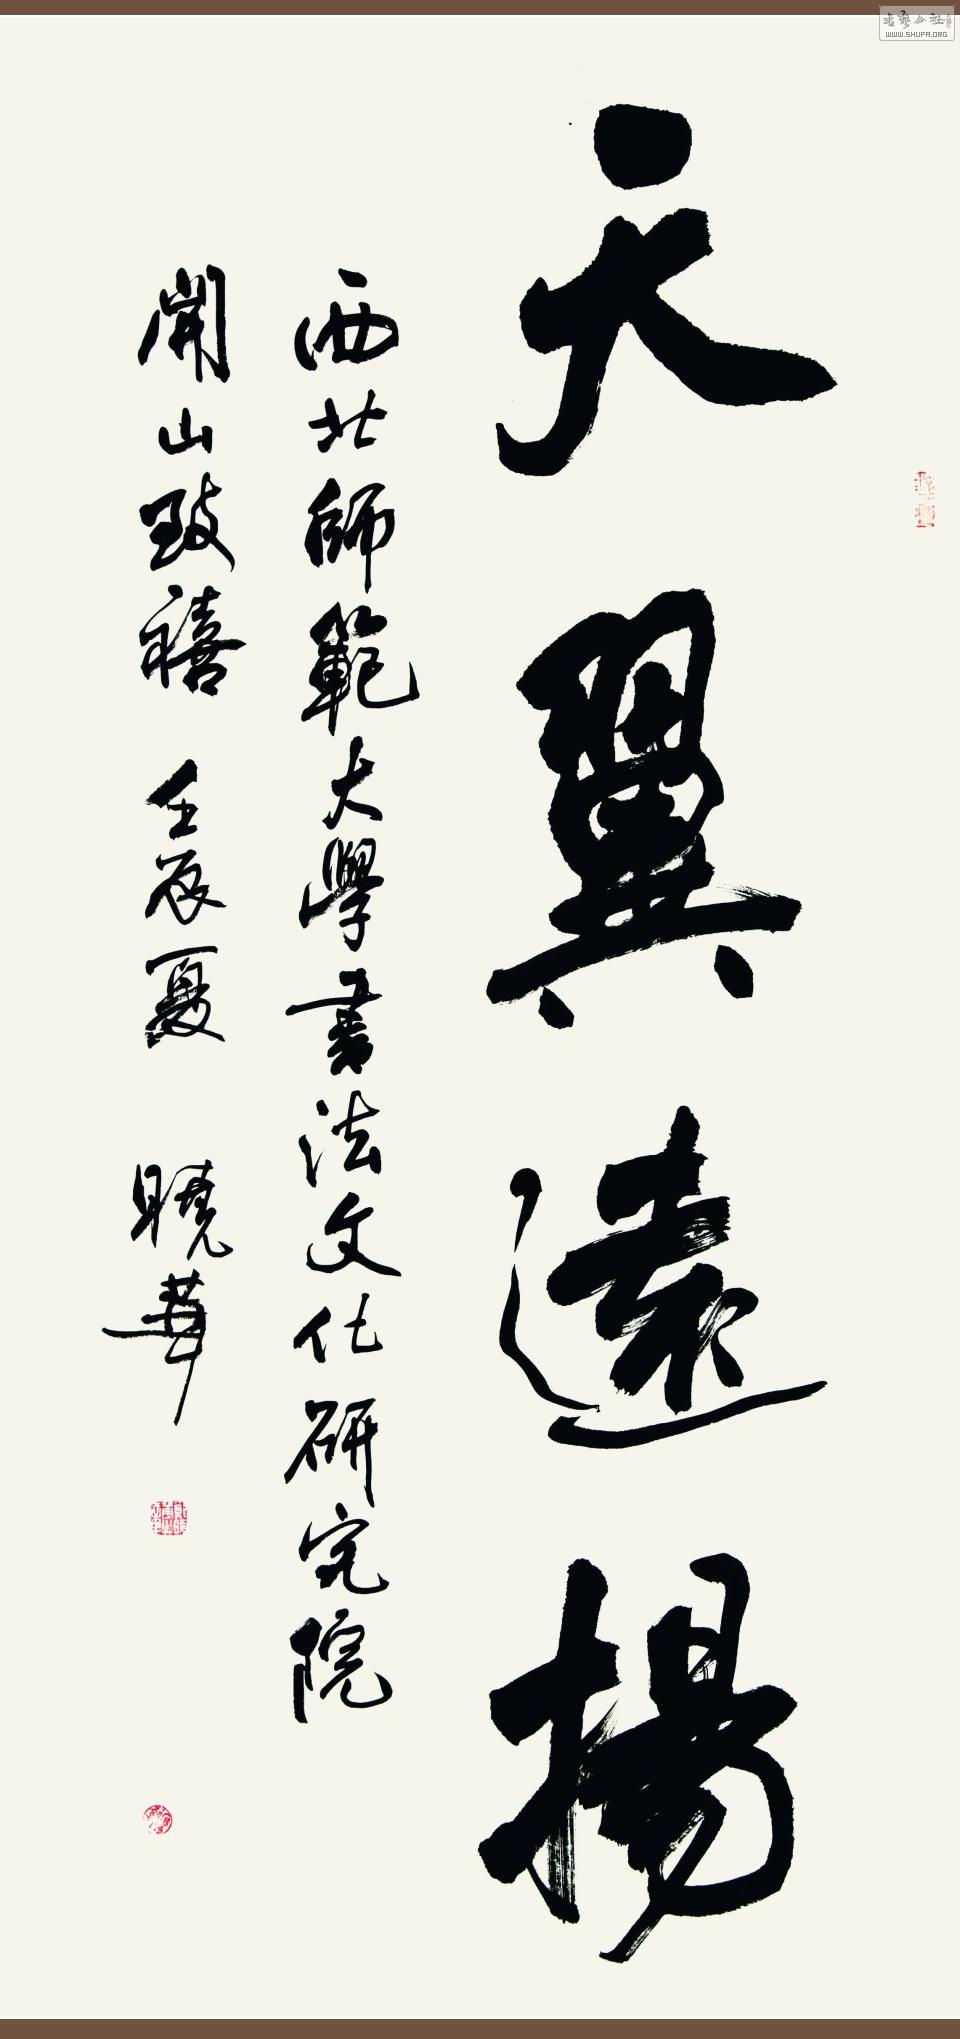 天翼遠揚
西北師範大學書法文化研究院
開山致禧 壬辰夏 曉華
書藝公社
WWW.SHUFA.ORG